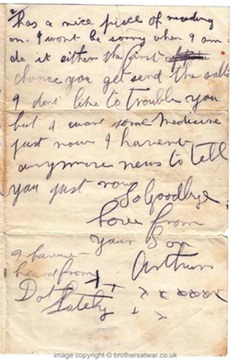 has a nice piece of
on. I wont be sorry when I am
do it either the first
chance you get send the salts
I dont like to trouble you
but I want some medicine
just now I havent
anymore news to tell
you just now
So Goodbye
love from
your Son
Arthur
I havent
heard from
Dot
lately
x x xxxx
x x
image copyright © brothersatwar.co.uk